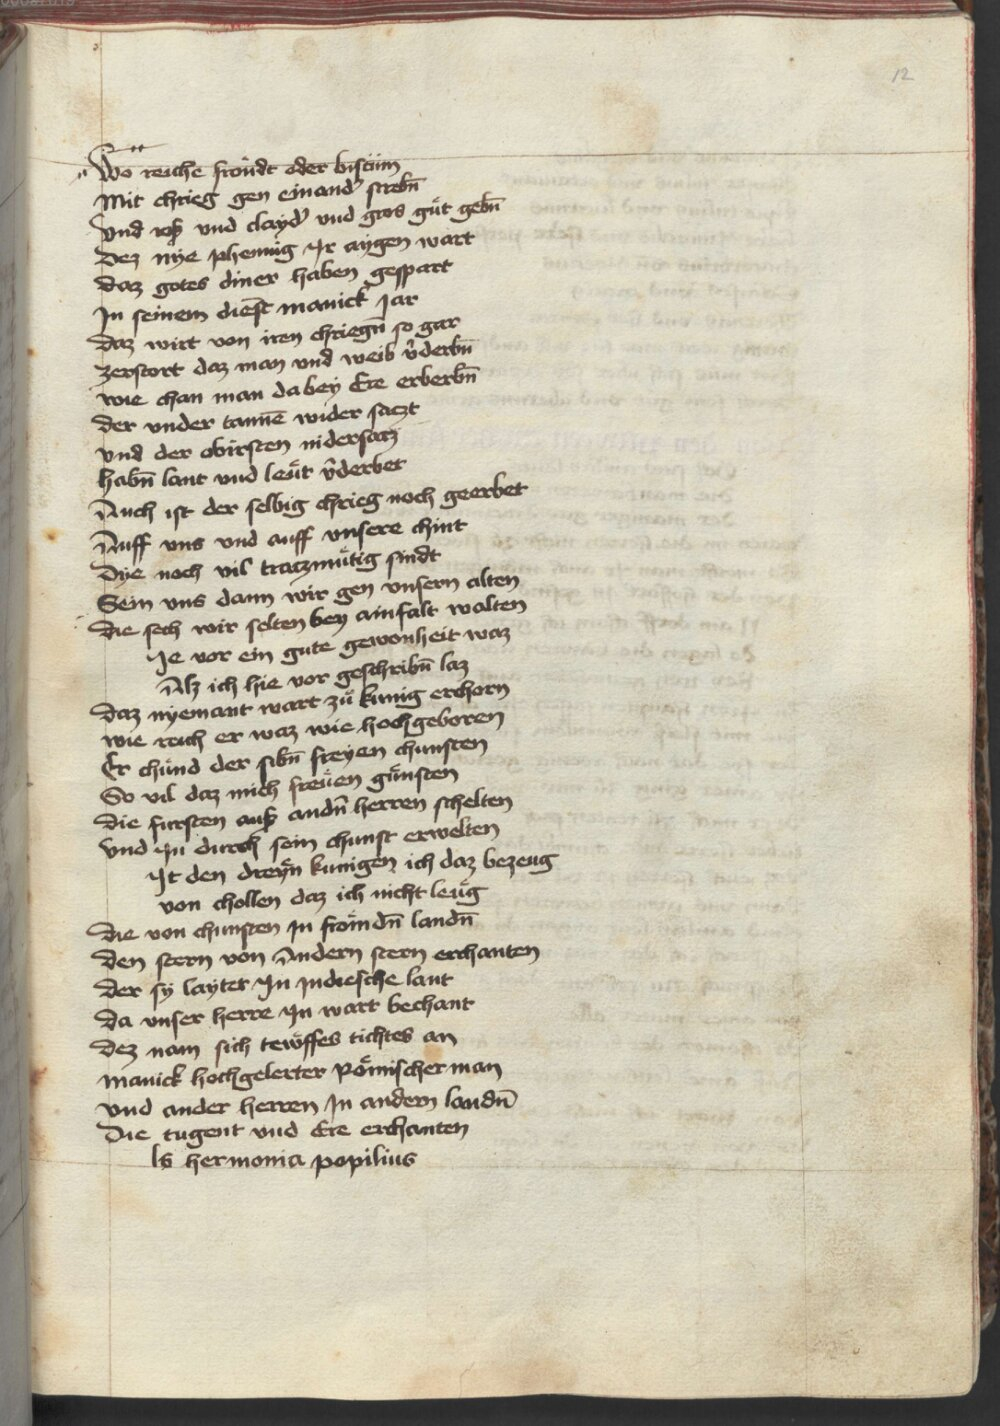 12
Wo reiche fröudt oder bistüm
Mit chrieg gen einand' strebn̄
Vnd roß vnd clayd' vnd gros güt gebn̄
Dez nye phennig Ir aygen wart
Daz gotes diner haben gespart
In seinem dienst manick Jar
Daz wirt von iren chriegn̄ so gar
Zerstort daz man vnd weib v'derbn̄
wie chan man da bey Ere erberbn̄
Der vnder tannē wider saczt
vnd der obirsten nidersacz
habn̄ lant vnd leüt v'derbet
Auch ist der selbig chrieg noch geerbet
Auff vns vnd auff vnsere chint
Dye noch vil traczmütig sindt
Sein vns dann wir gen vnsern alten
Die sech wir selten bey ainfalt walten
Ie vor ein gute gewonheit waz
Alz ich hie vor geschribn̄ laz
Daz nyemant wart zü kunig erchorn
wie reich er waz wie hochgeboren
Er chünd der sibn̄ freyen chunsten
So vil daz mich freüen günsten
Die fursten auß andn̄ herren schelten
vnd In durch sein chunst erwelten
It den dreyn̄ kunigen ich daz bezeug
von chollen daz ich nicht leüg
Die von chunsten In frömdn̄ landn̄
Den stern von Andern stern erchanten
Der sy laytet In Indiesche lant
Da vnser herre In wart bechant
Dez nam sich tewffes tichtes an
manick hochgelerter Römischer man
vnd ander herren In andern landn̄
Die tugent vnd Ere erchanten
ls hermonia popilius